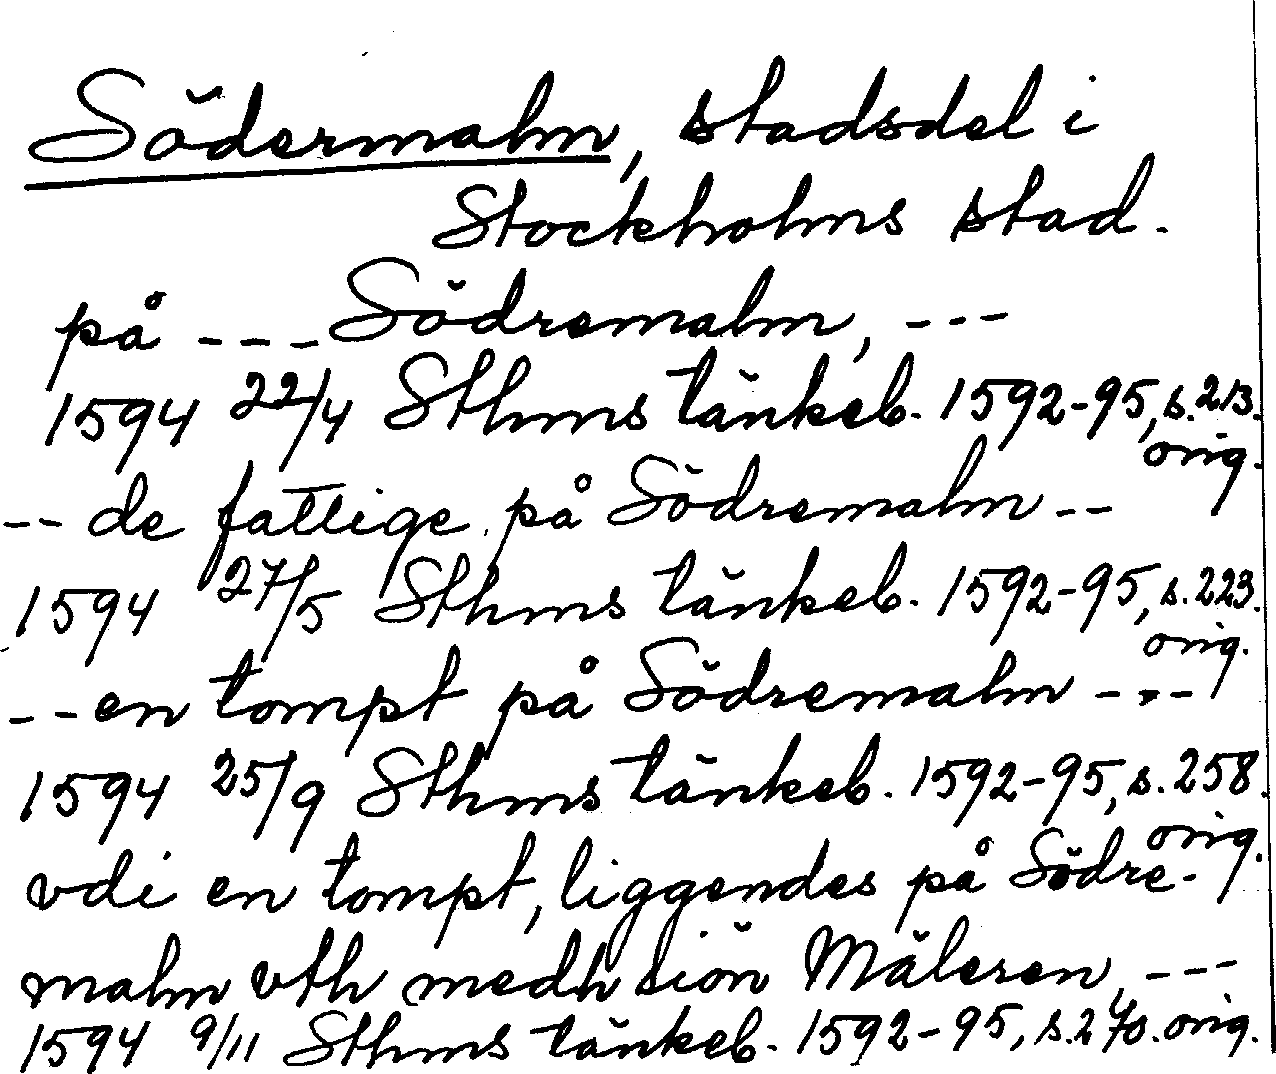 Södermalm, stadsdel i
Stockholms stad.
på --- Södremalm, ---
1594 22/4 Sthms tänkeb. 1592-95, s. 213.
orig.
-- de fattige på Södremalm --
1594 27/5 Sthms tänkeb. 1592-95, s. 223.
orig.
-- en tompt på Södremalm ---
1594 25/9 Sthms tänkeb. 1592-95, s. 258.
orig.
vdi en tompt, liggendes på Södre-
malm vth medh siön Mäleren, ---
1594 9/11 Sthms tänkeb. 1592-95, s. 270. orig.